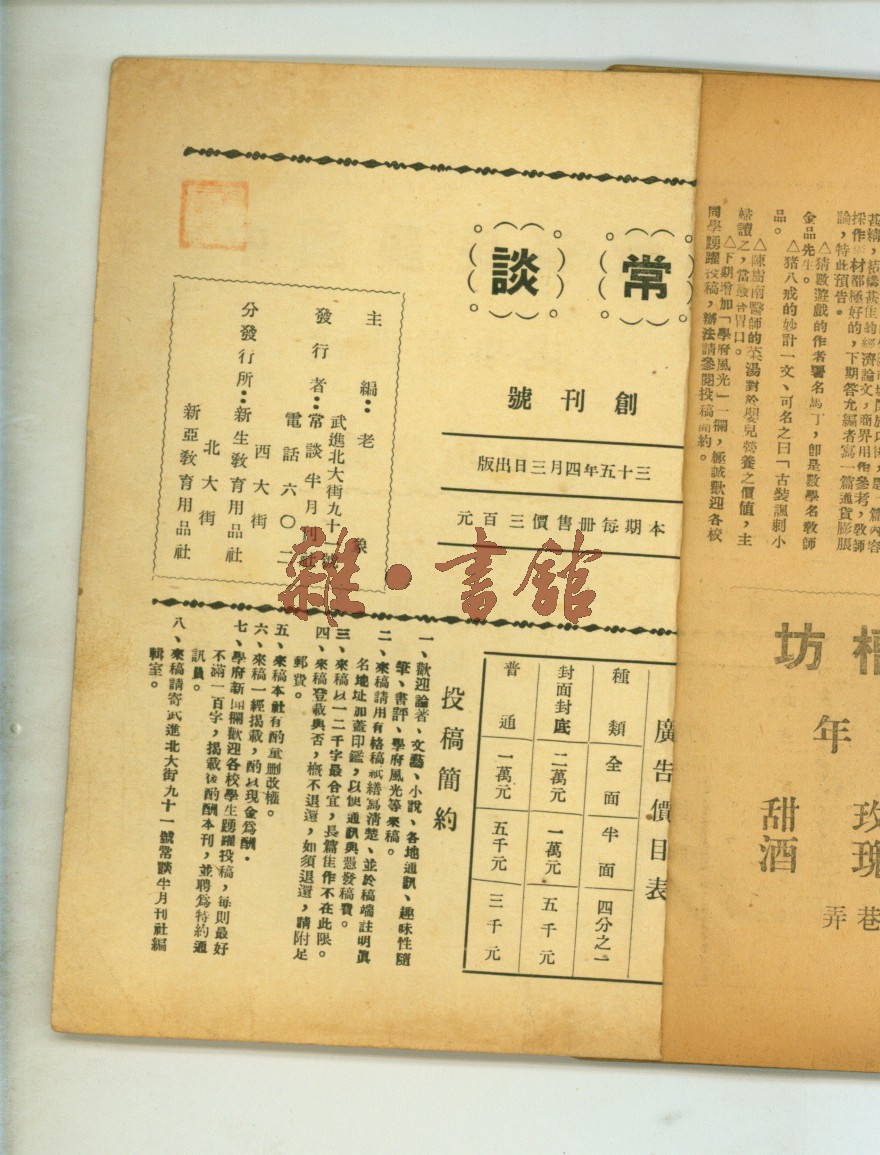 採作取材都極好的,下期答允編者寫一篇通貨膨脹
論,特此預告。
△猜數遊戲的作者署名馬丁,即是數學名教師
金品先生。
△豬八戒的妙計一文、可名之曰「古裝諷刺小
品。
△陳樹南醫師的菜湯對於嬰兒營養之價值,主
婦讀之,當
△下期增加「學府風光」一欄,極誠歡迎各校
同學踴躍投稿,辦法請參閱投稿簡約。
坊
年
玫瑰
甜酒
巷弄
常談
創刊號
三十五年四月三日出版
本期每册售價三百元
主編:老象
發行者:常談半月刊社
武進北大街九十一號
電話六〇二
分發行所:新生敎育用品社
西大街
新亞敎育用品社
北大街
廣告價目表
種類 全面 半面 四分之一
封面封底 二萬元 一萬元 五千元
普通 一萬元 五千元 三千元
投稿簡約
一、歡迎論著、文藝、小說、各地通訊、趣味性隨
筆、書評、學府風光等來稿。
二、來稿請用有格稿紙繕寫清楚、並於稿端註明眞
名地址加蓋印鑑,以便通訊與憑發稿費。
三、來稿以一二千字最合宜,長篇佳作不在此限。
四、來稿登載與否,槪不退還,如須退還,請附足
郵費。
五、來稿本社有酌量刪改權。
六、來稿一經揭載,酌以現金爲酬。
七、學府新聞欄歡迎各校學生踴躍投稿,每則最好
不滿一百字,揭載後酌酬本刊,並聘爲特約通
訊員。
八、來稿請寄武進北大街九十一號常談半月刊社編
輯室。
雜·書館